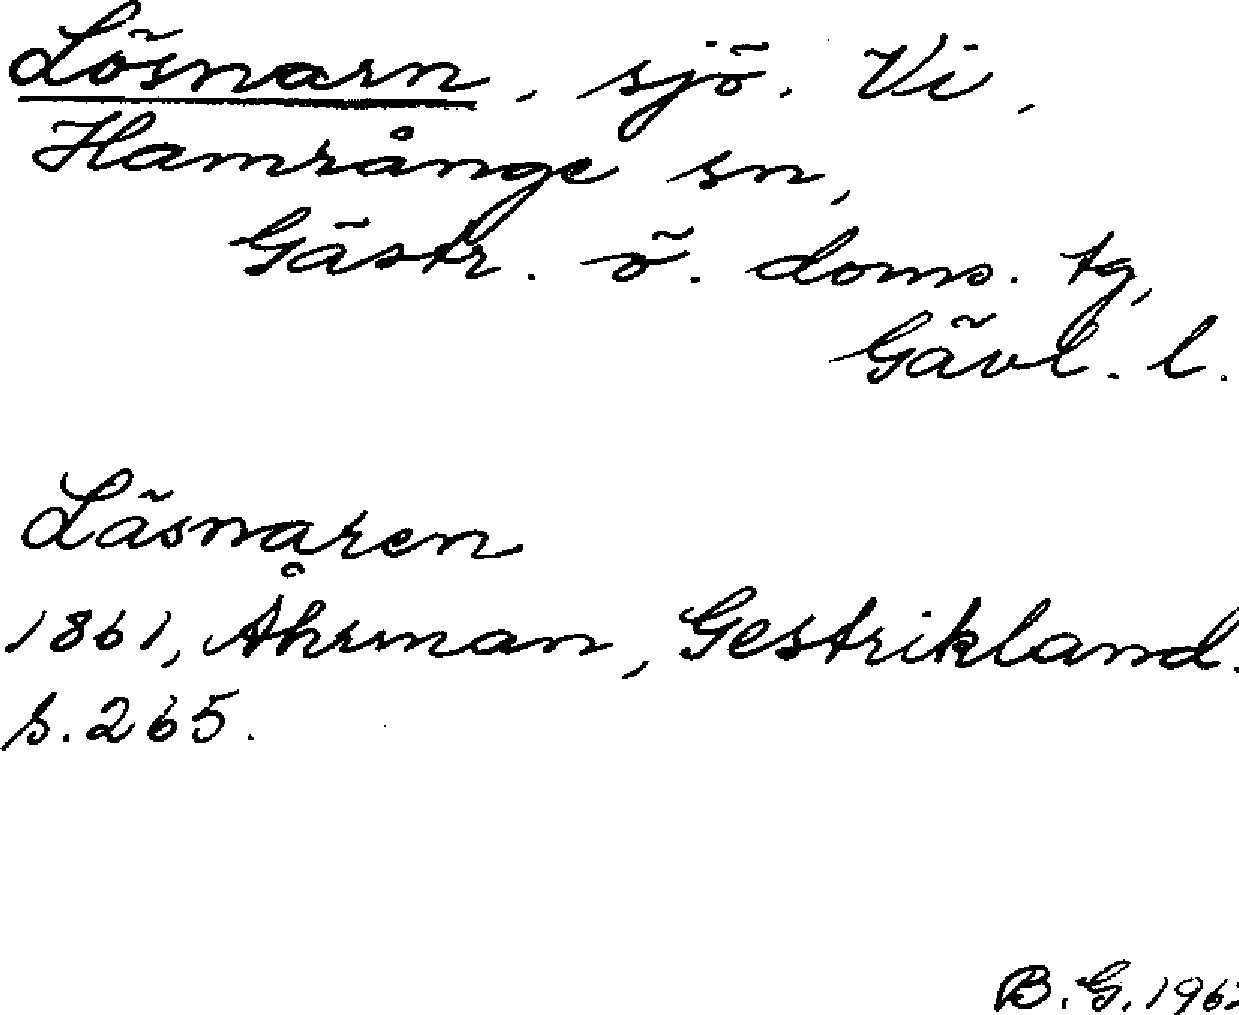 Lösnarn, sjö. Vi,
Hamrånge sn,
Gästr. ö. doms. tg,
Gävl. l.
Läsnaren
1861, Åhrman, Gestrikland.
s. 265.
B. G. 196